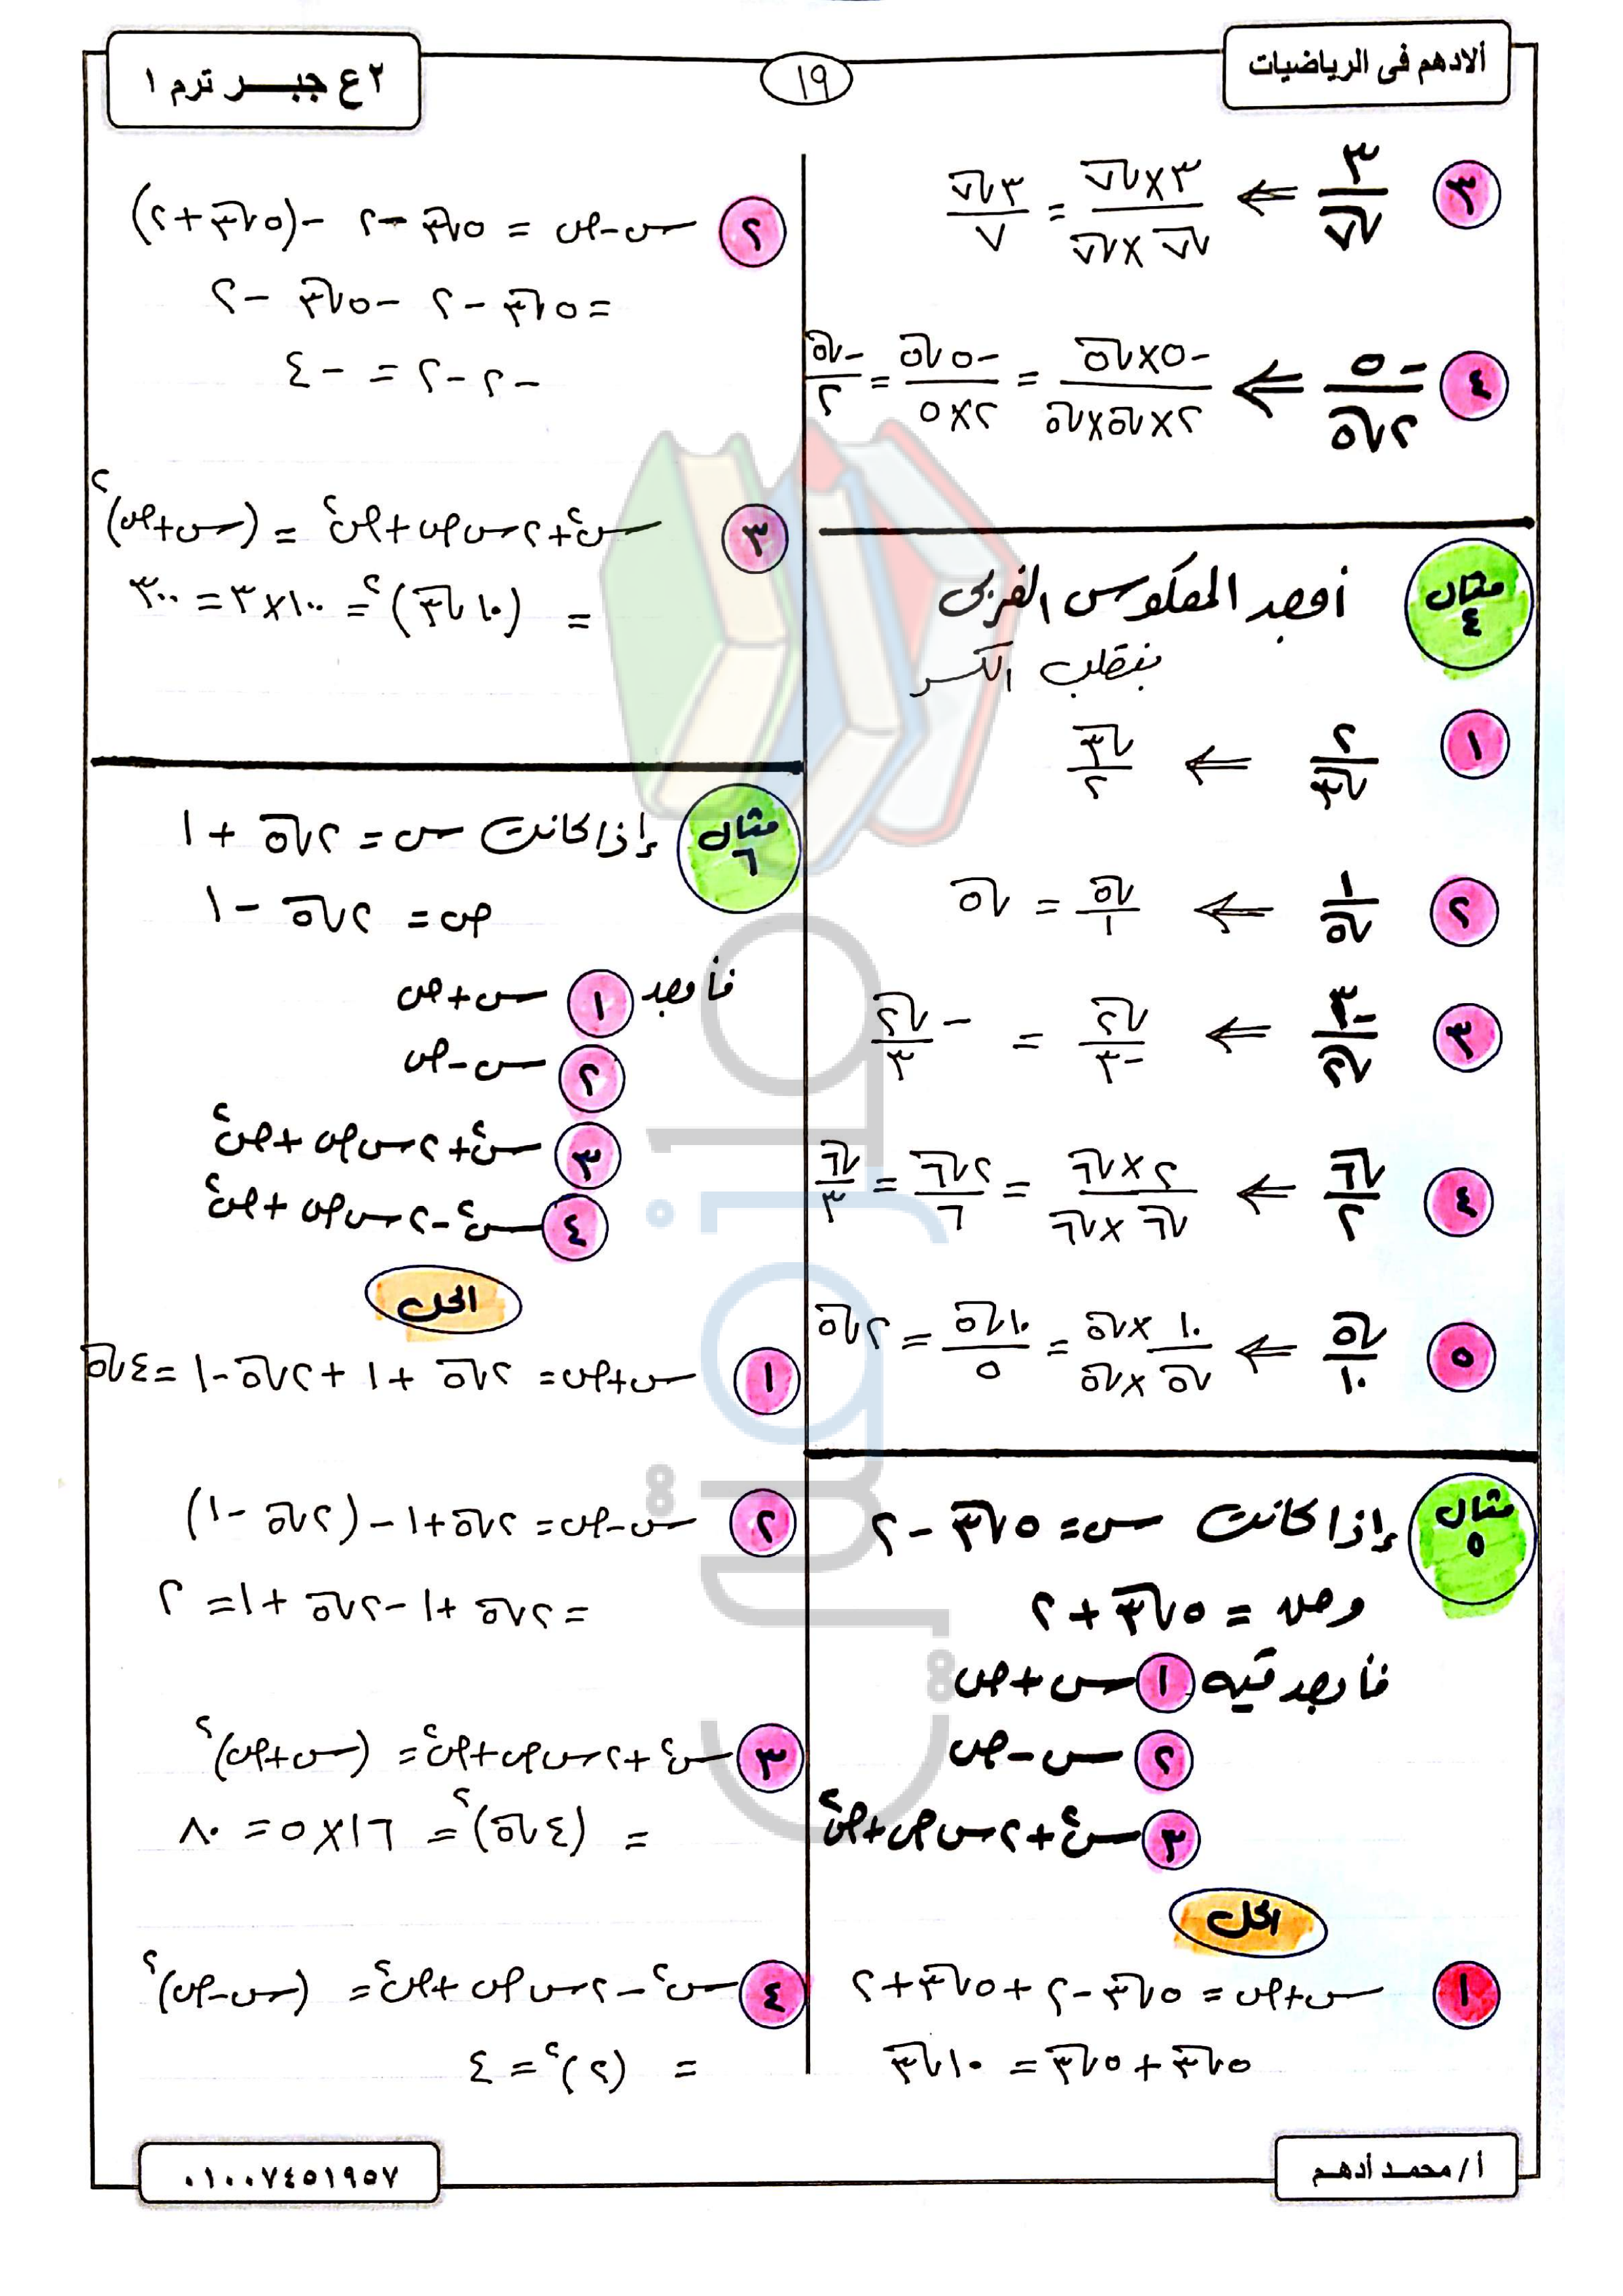 ألادهم فى الرياضيات
١٩
٢ ع جبـــر ترم ١
٣ ٣/√٧ ⇐ (٣×√٧)/(√٧×√٧) = ٣√٧/٧
٤ -٥/٢√٥ ⇐ (-٥×√٥)/(٢×√٥×√٥) = -٥√٥/(٢×٥) = -√٥/٢
مثال ٤ أوجد المعكوس الضربى
بنقلب الكسر
١ ٢/√٣ ⇐ √٣/٢
٢ ١/√٥ ⇐ √٥/١ = √٥
٣ -٣/√٢ ⇐ √٢/-٣ = -√٢/٣
٤ √٦/٢ ⇐ (٢×√٦)/(√٦×√٦) = ٢√٦/٦ = √٦/٣
٥ √٥/١٠ ⇐ (١٠×√٥)/(√٥×√٥) = ١٠√٥/٥ = ٢√٥
مثال ٥ إذا كانت س = ٥√٣ - ٢
وص = ٥√٣ + ٢
فأوجد قيمه ١ س + ص
٢ س - ص
٣ س² + ٢ س ص + ص²
الحل
١ س + ص = ٥√٣ - ٢ + ٥√٣ + ٢
٥√٣ + ٥√٣ = ١٠√٣
٢ س - ص = ٥√٣ - ٢ - (٥√٣ + ٢)
= ٥√٣ - ٢ - ٥√٣ - ٢
- ٢ - ٢ = - ٤
٣ س² + ٢ س ص + ص² = (س + ص)²
= (١٠√٣)² = ١٠٠ × ٣ = ٣٠٠
مثال ٦ إذا كانت س = ٢√٥ + ١
ص = ٢√٥ - ١
فأوجد ١ س + ص
٢ س - ص
٣ س² + ٢ س ص + ص²
٤ س² - ٢ س ص + ص²
الحل
١ س + ص = ٢√٥ + ١ + ٢√٥ - ١ = ٤√٥
٢ س - ص = ٢√٥ + ١ - (٢√٥ - ١)
= ٢√٥ + ١ - ٢√٥ + ١ = ٢
٣ س² + ٢ س ص + ص² = (س + ص)²
= (٤√٥)² = ١٦ × ٥ = ٨٠
٤ س² - ٢ س ص + ص² = (س - ص)²
= (٢)² = ٤
أ / محمد أدهم
٠١٠٠٧٤٥١٩٥٧